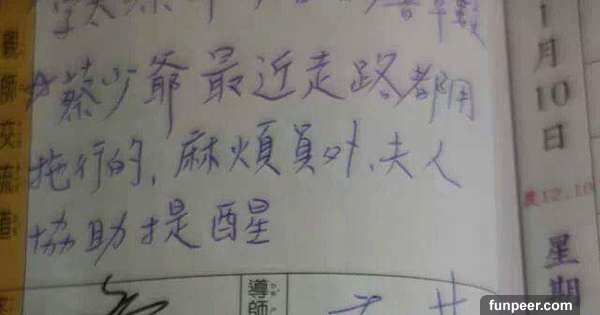 ☆蔡少爺最近走路都用
拖行的,麻煩員外、夫人
協助提醒
導師
親師交流道
1月10日
星期
funpeer.com